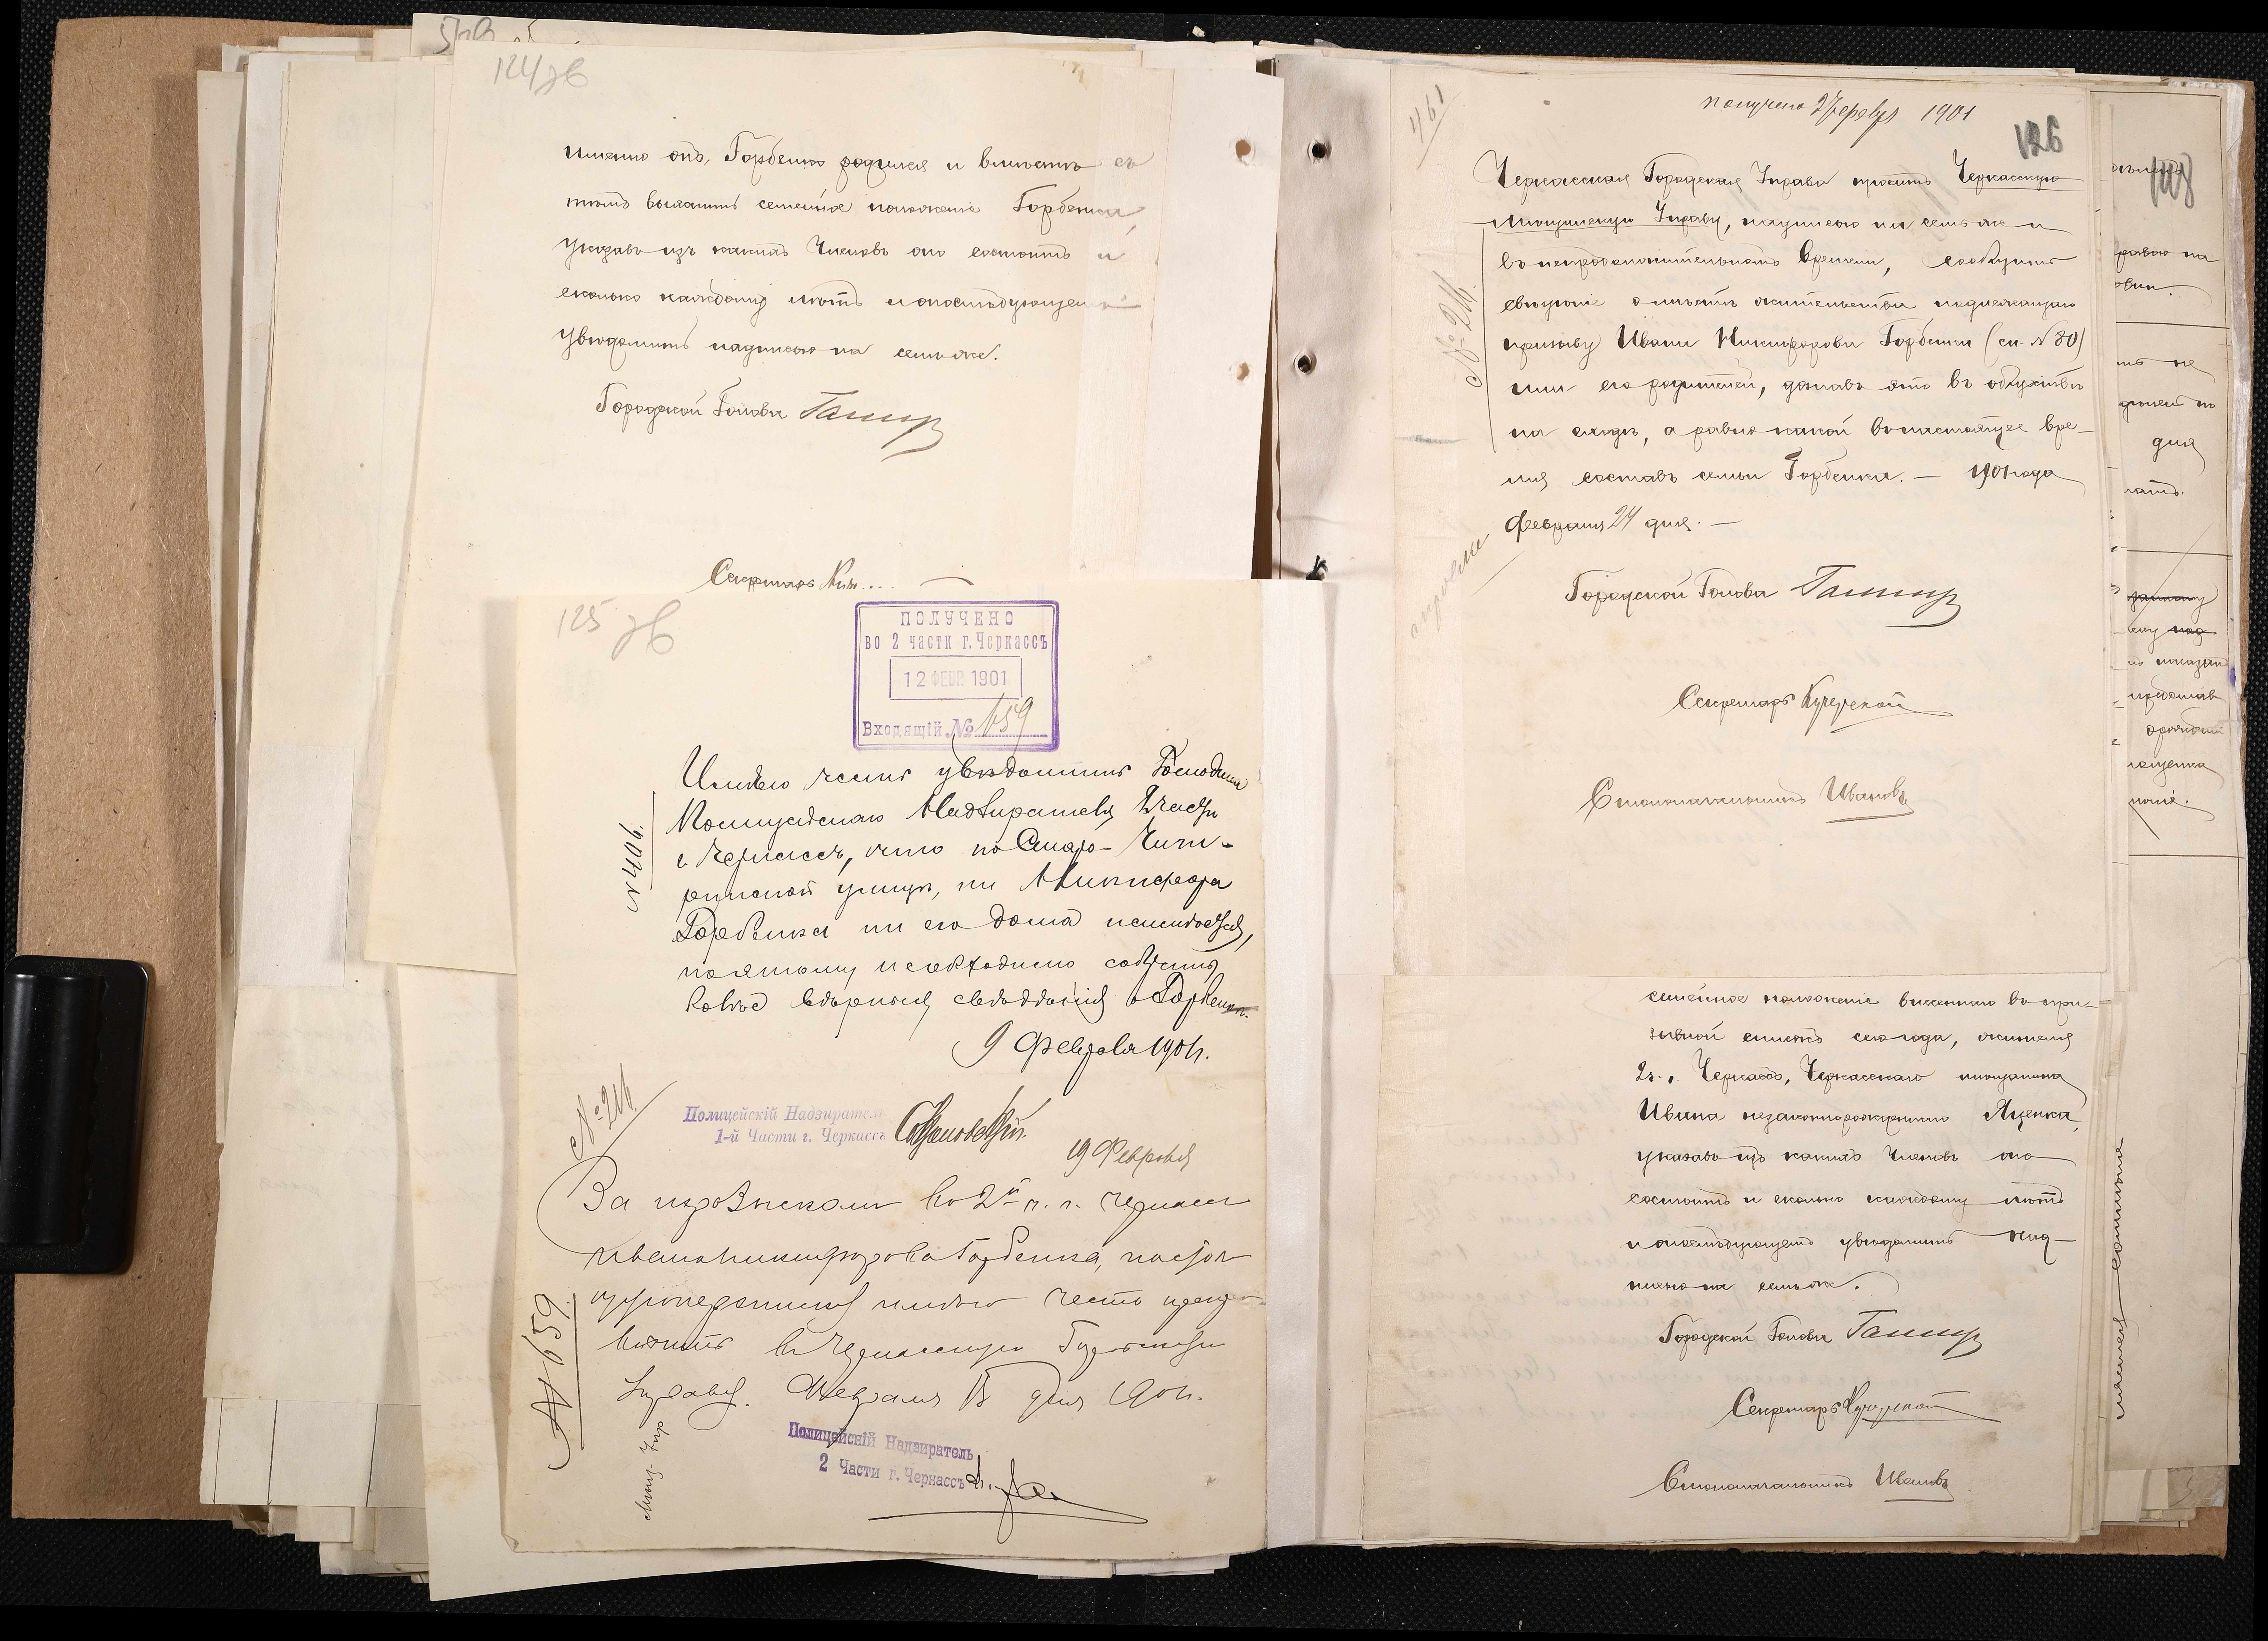 124 об
именно онъ, Горбенко родился и вмѣстѣ съ
тѣмъ выяснить семейное положеніе Горбенка,
указавъ изъ какихъ членовъ оно состоитъ и
сколько каждому лѣтъ и о послѣдующемъ
увѣдомить надписью на семъ же.
Городской Голова
Секретарь
125 об
ПОЛУЧЕНО
во 2 части г. Черкассъ
12 ФЕВР. 1901
Входящій № 659
Имѣю честь увѣдомить Господина
Полицейскаго Надзирателя 2 части
г. Черкассъ, что по Старо-Чиги-
ринской улицѣ, ни Никифора
Горбенка ни его дома не имѣется,
поэтому необходимо собрать
болѣе вѣрныя свѣдѣнія о Горбенкѣ.
№ 406.
9 Февраля 1901 г.
№ 216
Полицейскій Надзиратель
1-й Части г. Черкассъ
19 Февраля
За нерозыскомъ во 2й ч. г. Черкассъ
Ивана Никифорова Горбенка, настоя-
щую переписку имѣю честь предста-
вить въ Черкасскую Городскую
Управу. Февраля 13 дня 1901 г.
№ 659
Мѣщ. Упр
Полицейскій Надзиратель
2 Части г. Черкассъ
461
получено 27 февр 1901
126
Черкасская Городская Управа проситъ Черкасскую
Мѣщанскую Управу, надписью на семъ же и
въ непродолжительномъ времени, сообщить
свѣдѣніе о мѣстѣ жительства подлежащаго
призыву Ивана Никифорова Горбенка (сп. № 80)
или его родителей, узнавъ это въ обществѣ
на сходѣ, а равно какой въ настоящее вре-
мя составъ семьи Горбенка. — 1901 года
Февраля 24 дня. —
Городской Голова
Секретарь Кучерской
Столоначальникъ Ивановъ
семейное положеніе внесеннаго въ при-
зывной списокъ сего года, жителя
2 ч. г. Черкассъ, Черкасскаго мѣщанина
Ивана незаконнорожденнаго Яценка,
указавъ изъ какихъ членовъ оно
состоитъ и сколько каждому лѣтъ
и о послѣдующемъ увѣдомить над-
писью на семъ же.
Городской Голова
Секретарь Кучерской
Столоначальникъ Ивановъ
дня